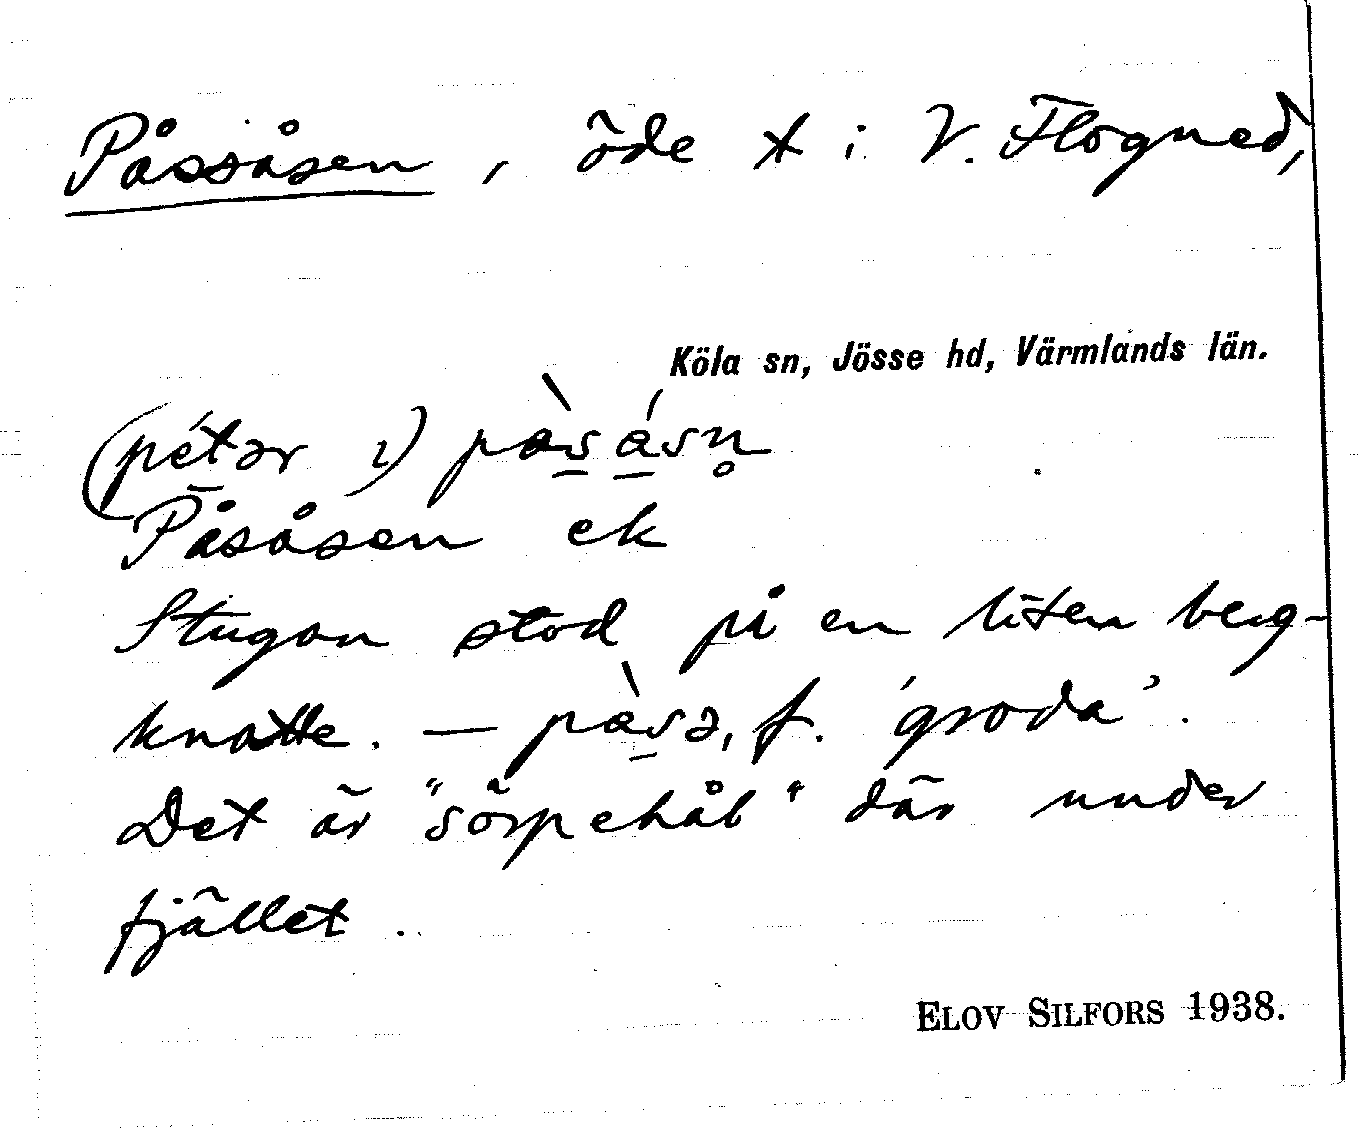 Påssåsen, öde x i V. Flogned,
Köla sn, Jösse hd, Värmlands län.
(pétər ɩ) pàsásn̥
Påsåsen ek
Stugan stod på en liten berg-
knatte. — pàsə, f. 'groda'.
Det är "sörpehål" där under
fjället.
ELOV SILFORS 1938.